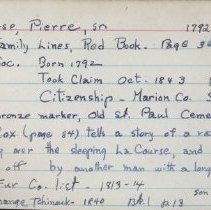 se, Pierre, sr 1792
Family Lines, Red Book. Page
oc. Born 1792
Took Claim Oct. 1843
Citizenship - Marion Co.
bronze marker, Old St. Paul Ceme
Cox (page 84) tells of a ra
over the sleeping La Course, and
off by another man with a long
Fur Co. list - 1813-14
son
hange Tchinouk - 1840 p 18